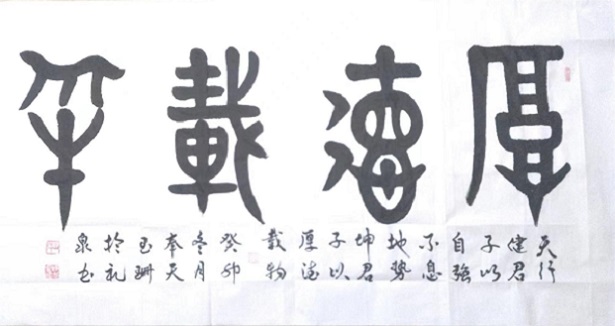 厚德載物
天行
健君
子以
自強
不息
地勢
坤君
子以
厚德
載物
癸卯
冬月
奉天
玉珊
於礼
泉书